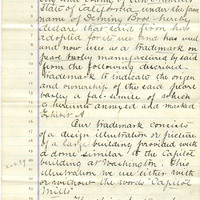 city and county of San Francisco
state of California, under the firm
name of Deming Bros. hereby
declare that said firm has
adopted for its use and has used
and now uses as a trademark on
pearl barley manufactured by said
firm the following described
trademark to indicate the origin
and ownership of the said pearl
barley a fac-simile of which
is hereunto annexed and marked
Exhibit A
Our trademark consists
of a design illustration or picture
of a large building provided with
a dome similar to the Capitol
building at Washington. This
illustration we use either with
or without the words "Capitol
Mills"